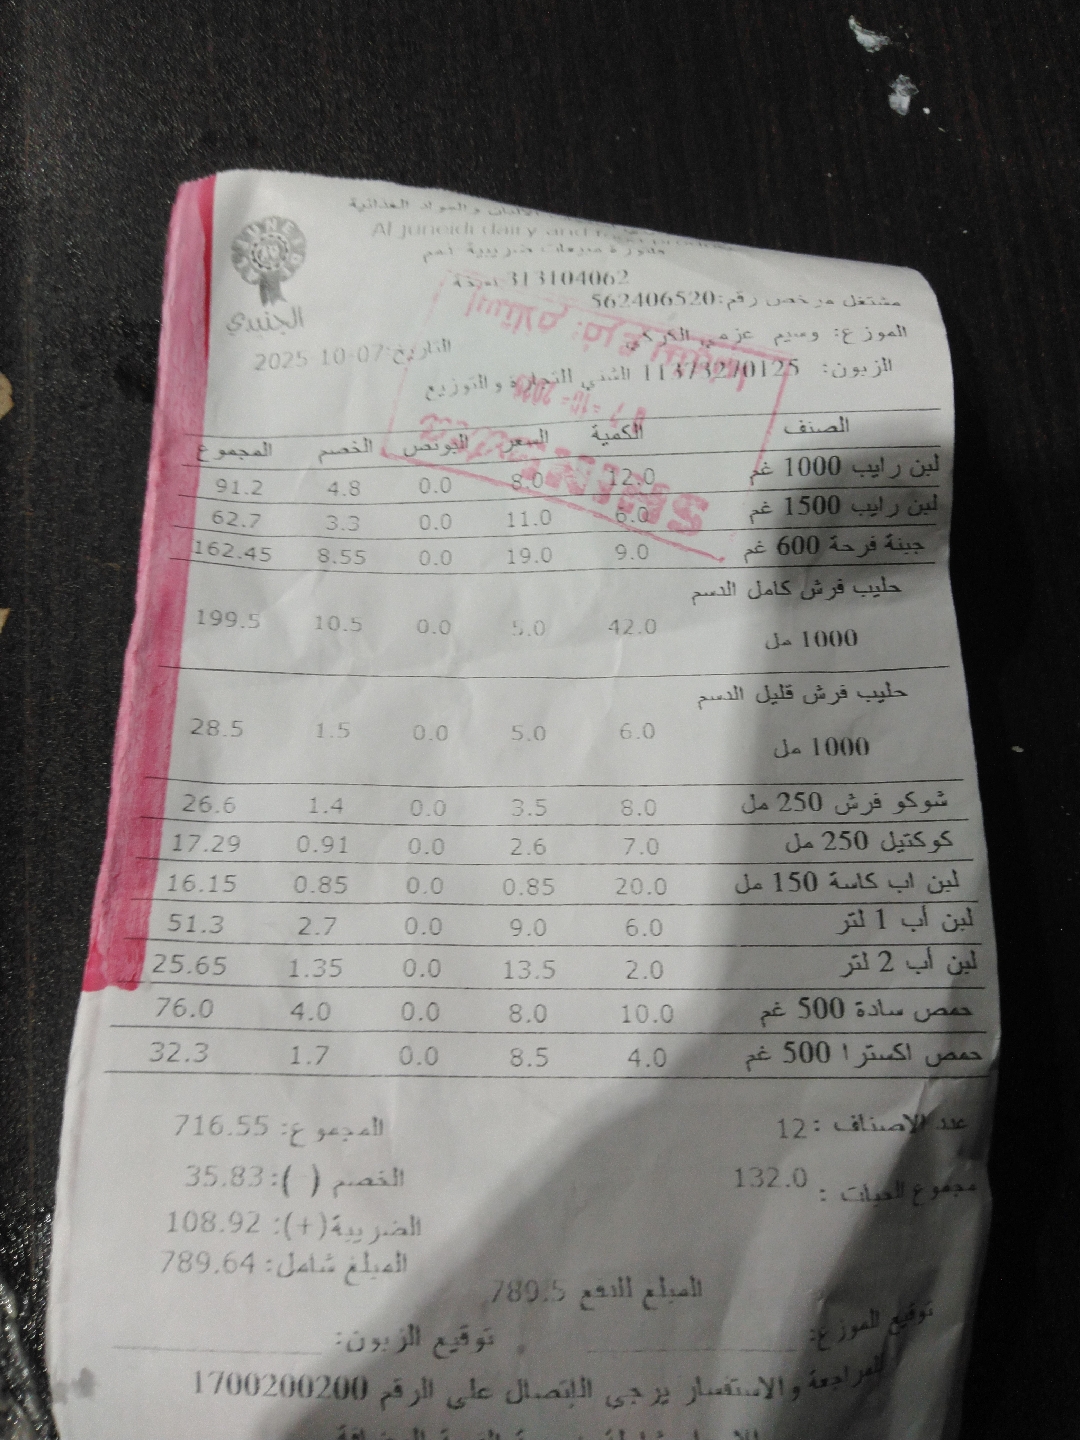 الالبان والمواد الغذائية
Al juneidi dairy and
فاتورة مبيعات ضريبية
313104062
مشتغل مرخص رقم:562406520
الجنيدي
الموزع: وسيم عزمي الكركي
التاريخ:07-10-2025
الزبون: 113732/0125 الشني التجارة والتوزيع
الصنف الكمية السعر البونص الخصم المجموع
لبن رايب 1000 غم 12.0 8.0 0.0 4.8 91.2
لبن رايب 1500 غم 6.0 11.0 0.0 3.3 62.7
جبنة فرحة 600 غم 9.0 19.0 0.0 8.55 162.45
حليب فرش كامل الدسم
1000 مل 42.0 5.0 0.0 10.5 199.5
حليب فرش قليل الدسم
1000 مل 6.0 5.0 0.0 1.5 28.5
شوكو فرش 250 مل 8.0 3.5 0.0 1.4 26.6
كوكتيل 250 مل 7.0 2.6 0.0 0.91 17.29
لبن اب كاسة 150 مل 20.0 0.85 0.0 0.85 16.15
لبن أب 1 لتر 6.0 9.0 0.0 2.7 51.3
لبن أب 2 لتر 2.0 13.5 0.0 1.35 25.65
حمص سادة 500 غم 10.0 8.0 0.0 4.0 76.0
حمص اكسترا 500 غم 4.0 8.5 0.0 1.7 32.3
عدد الاصناف : 12 المجموع: 716.55
مجموع الحبات : 132.0 الخصم ( ): 35.83
الضريبة(+): 108.92
المبلغ شامل: 789.64
المبلغ للدفع 789.5
توقيع الموزع: توقيع الزبون:
للمراجعة والاستفسار يرجى الاتصال على الرقم 1700200200